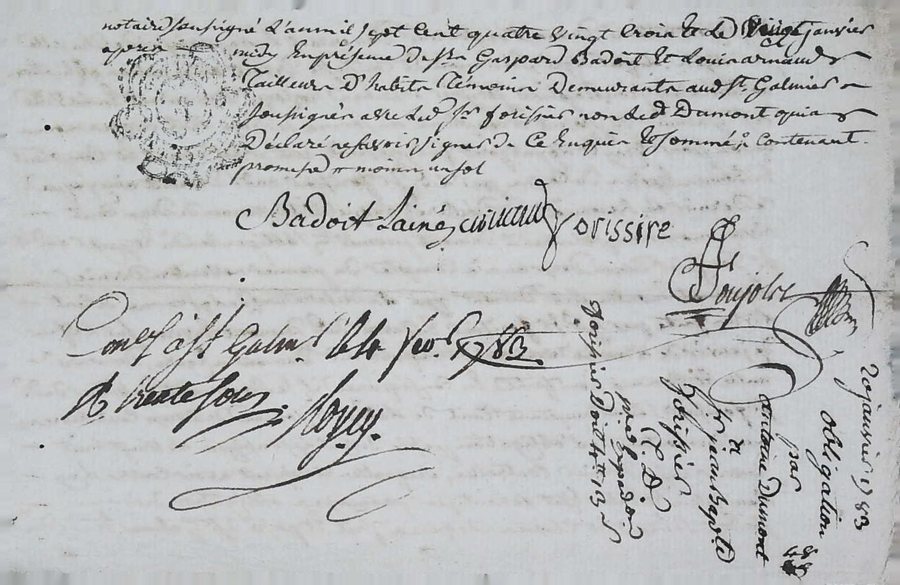 notaire soussigné L'an mil sept Cent quatre vingt trois Et le vingt janvier
apres midy En presence de Sr Gaspard Badoit Et Louis arnaud
Tailleur D'habits Témoins Demeurants aud St Galmier
soussignés avec led Sr forissier non led Dumont qui a
Déclaré ne scavoir signer de Ce Enquis Et sommé, Contenant
promesse moins un sol
Badoit Lainé arnaud forissire
Boujolie
Con.lé a St Galmr le 4 fevr 1783
R trente sous
Royey
20 janvier 1783
obligation
par
antoine Dumont
a
Sr jean Bapte
forissier
forissier Doit